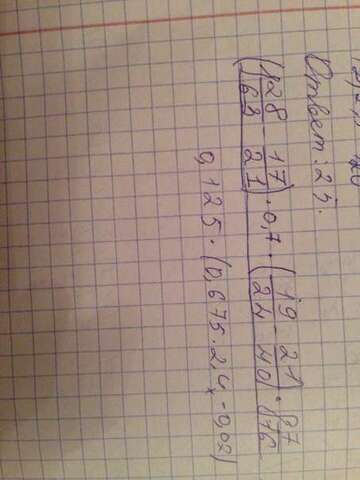 Ответ: 25.
(1 28/63 - 17/21) · 0,7 · (19/24 - 21/40) · 87/176
0,125 · (0,675 · 2,4 - 0,02)